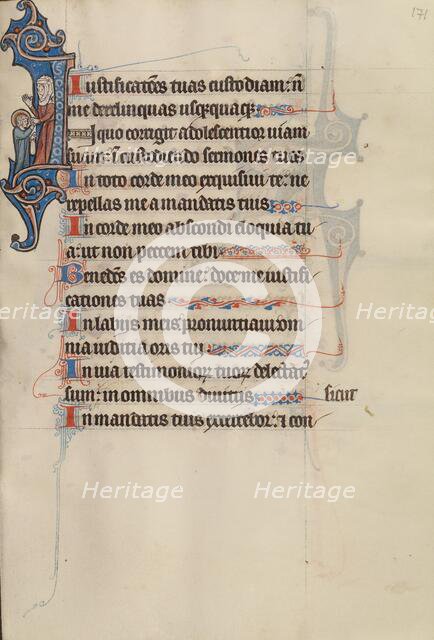 171
Iustificatões tuas custodiam: ñ
me derelinquas usq;quaq;
I quo corrigit adolescentior uiam
suam: ĩ custodiendo sermones tuos
In toto corde meo exquisiui te: ne
repellas me a mandatis tuis
In corde meo abscondi eloquia tu
a: ut non peccem tibi
Benedõs es domine: doce me iustifi
cationes tuas
In labijs meis pronuntiaui: om
nia iudicia oris tui
In uia testimonioꝝ tuoꝝ delectat
sum: in omnibus diuitijs
sicut
In mandatis tuis exercebor: ⁊ con
Heritage
Heritage
Heritage
Heritage
Heritage
Heritage
Heritage
Heritage